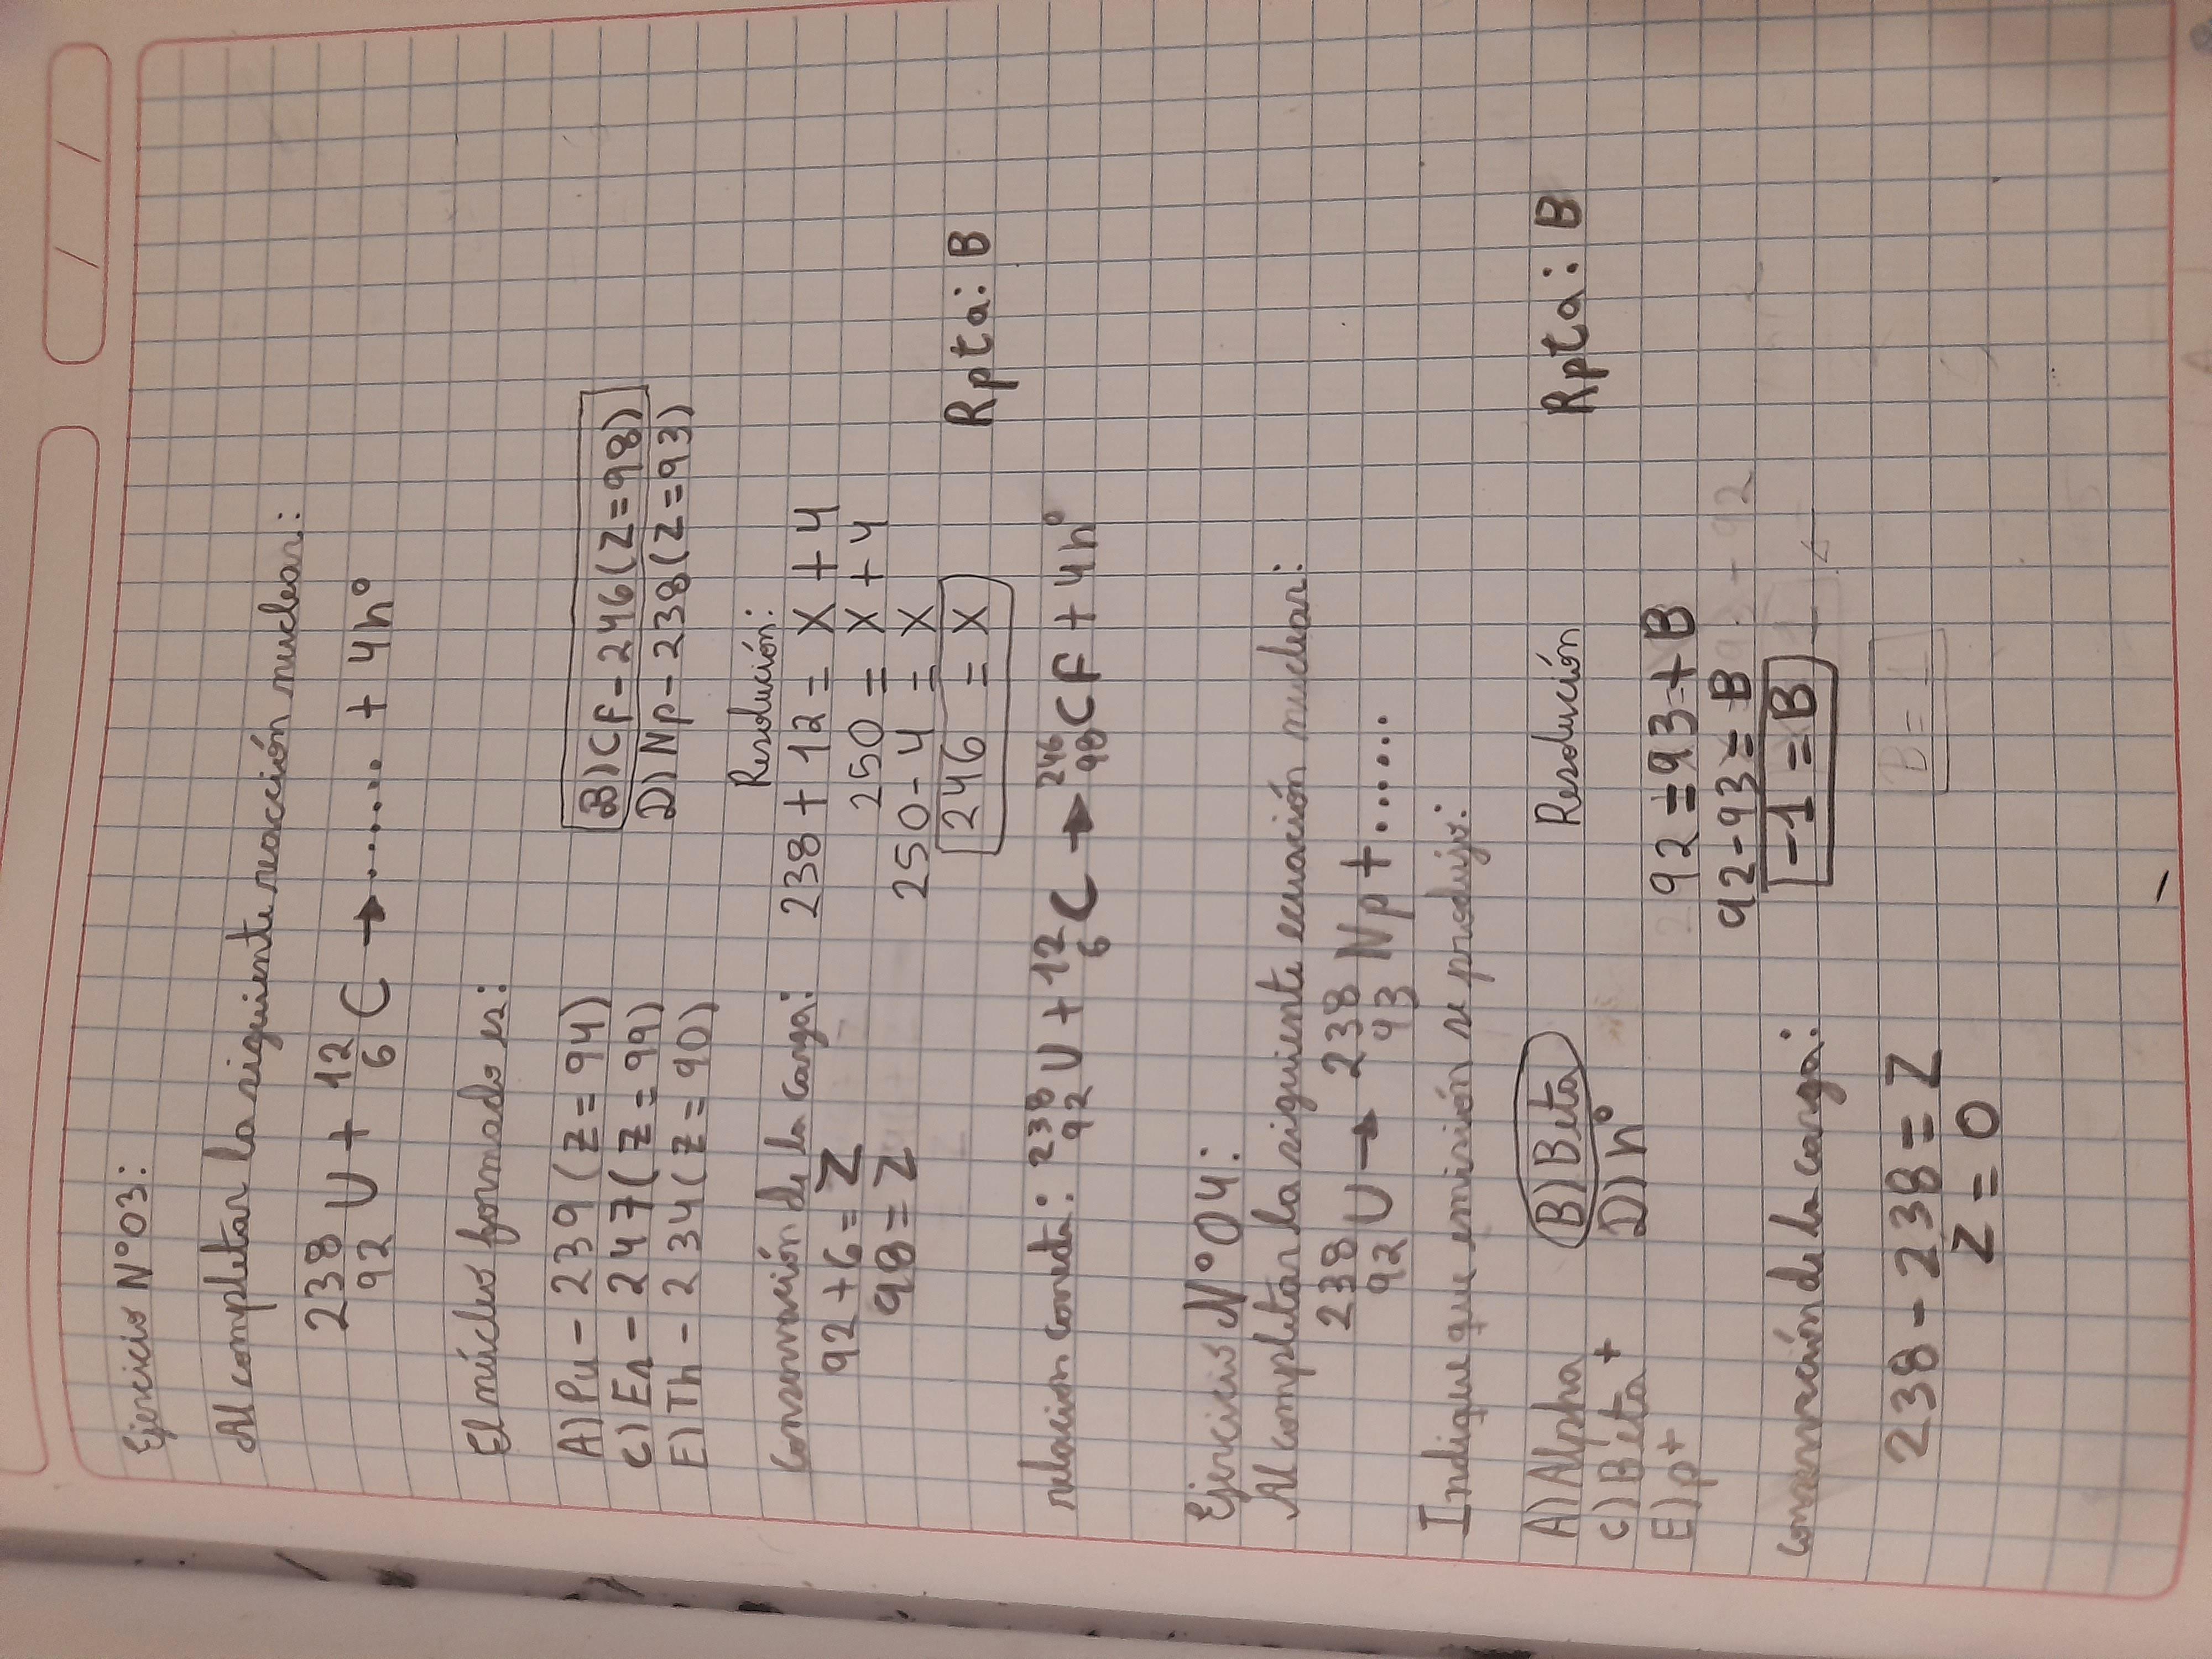 Ejercicio N°03:
Al completar la siguiente reacción nuclear:
238 92 U + 12 6 C → ...... + 4n°
El núcleo formado es:
A) Pu - 239 (Z = 94) B) CF - 246 (Z = 98)
C) En - 247 (Z = 99) D) Np - 238 (Z = 93)
E) Th - 234 (Z = 90)
Conservación de la carga: Resolución:
92 + 6 = Z 238 + 12 = X + 4
98 = Z 250 = X + 4
250 - 4 = X
246 = X Rpta: B
relacion correcta: 238 92 U + 12 6 C → 246 98 CF + 4n°
Ejercicio N°04:
Al completar la siguiente ecuación nuclear:
238 92 U → 238 93 Np + ......
Indique que emisión se produjo:
A) Alpha B) Beta Resolución Rpta: B
C) Beta + D) n°
E) p+ 92 = 93 + B
92 - 93 = B
Conservación de la carga: -1 = B
238 - 238 = Z
Z = 0